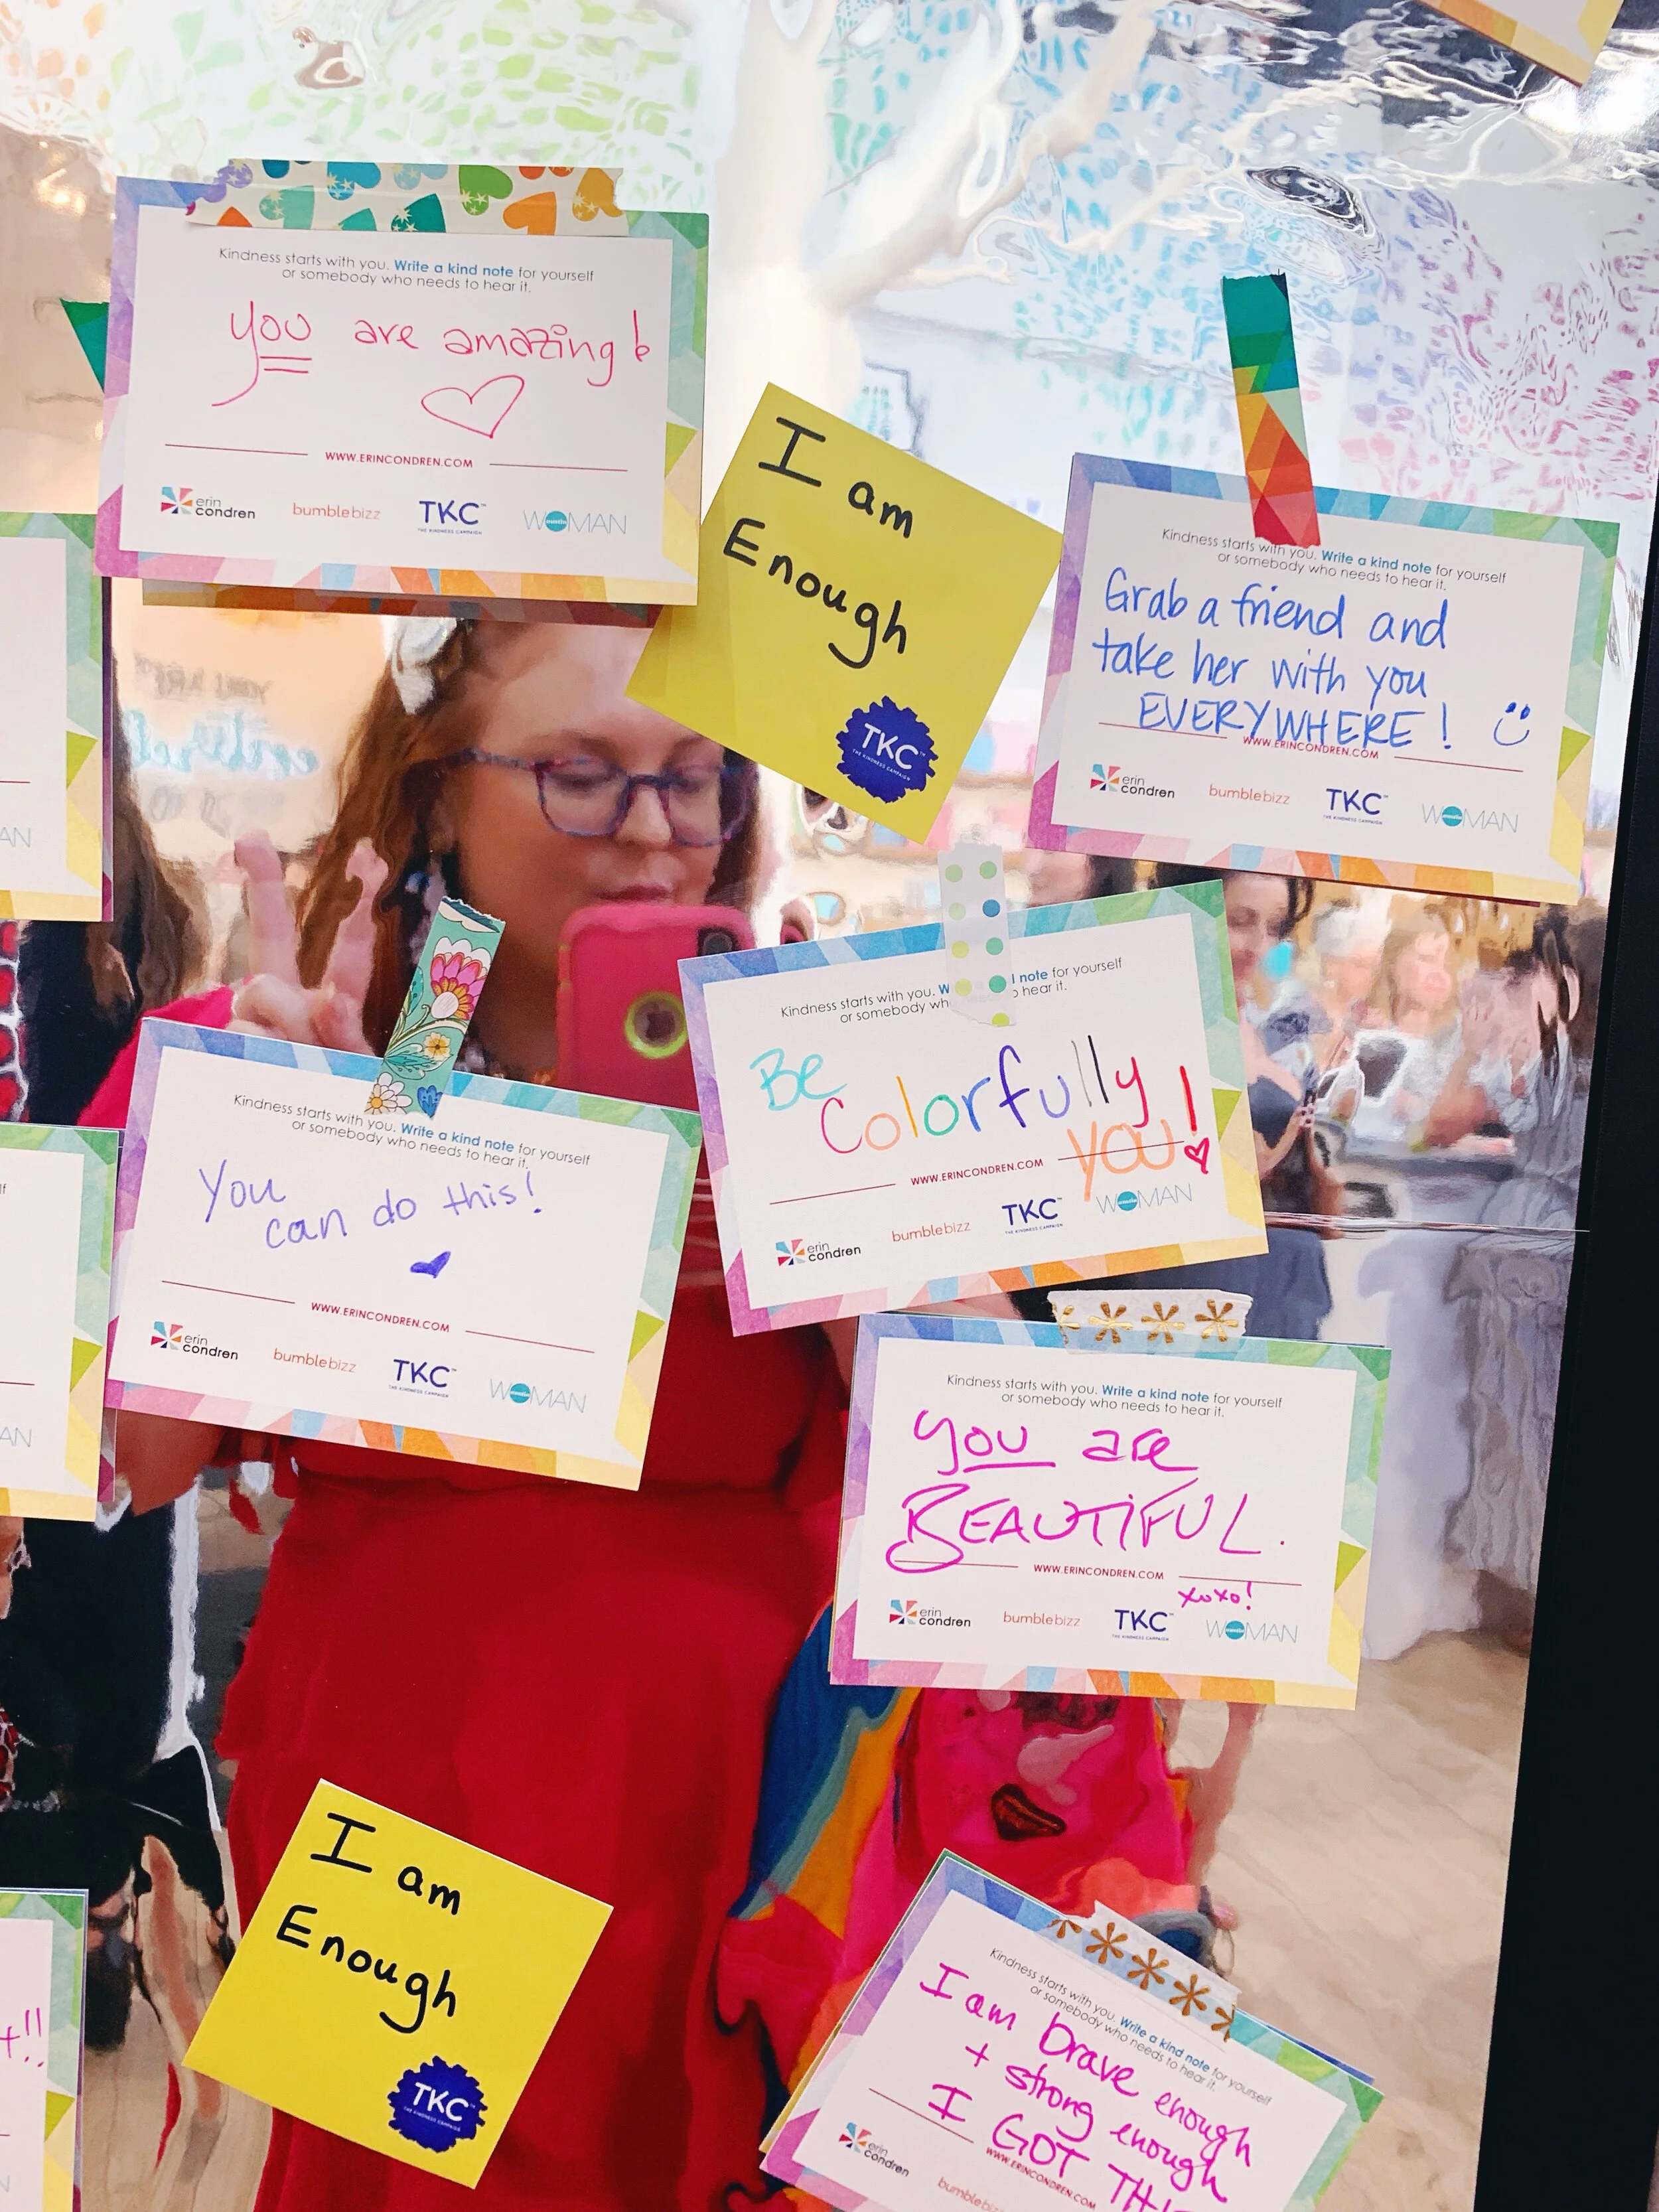 Kindness starts with you. Write a kind note for yourself
or somebody who needs to hear it.
you are amazing!
WWW.ERINCONDREN.COM
erin
condren
bumblebizz
TKC
THE KINDNESS CAMPAIGN
WOMAN
I am
Enough
TKC
THE KINDNESS CAMPAIGN
Kindness starts with you. Write a kind note for yourself
or somebody who needs to hear it.
Grab a friend and
take her with you
EVERYWHERE!
WWW.ERINCONDREN.COM
erin
condren
bumblebizz
TKC
THE KINDNESS CAMPAIGN
WOMAN
Kindness starts with you. Write a kind note for yourself
or somebody who needs to hear it.
You
can do this!
WWW.ERINCONDREN.COM
erin
condren
bumblebizz
TKC
THE KINDNESS CAMPAIGN
WOMAN
Kindness starts with you. W note for yourself
or somebody hear it.
Be
Colorfully
YOU!
WWW.ERINCONDREN.COM
erin
condren
bumblebizz
TKC
THE KINDNESS CAMPAIGN
WOMAN
Kindness starts with you. Write a kind note for yourself
or somebody who needs to hear it.
you are
BEAUTiFUL.
WWW.ERINCONDREN.COM
xoxo!
erin
condren
bumblebizz
TKC
THE KINDNESS CAMPAIGN
WOMAN
I am
Enough
TKC
THE KINDNESS CAMPAIGN
Kindness starts with you. Write a kind note for yourself
or somebody who needs to hear it.
I am brave enough
+ strong enough
I GOT
WWW.ERINCONDREN.COM
erin
condren
AN
AN